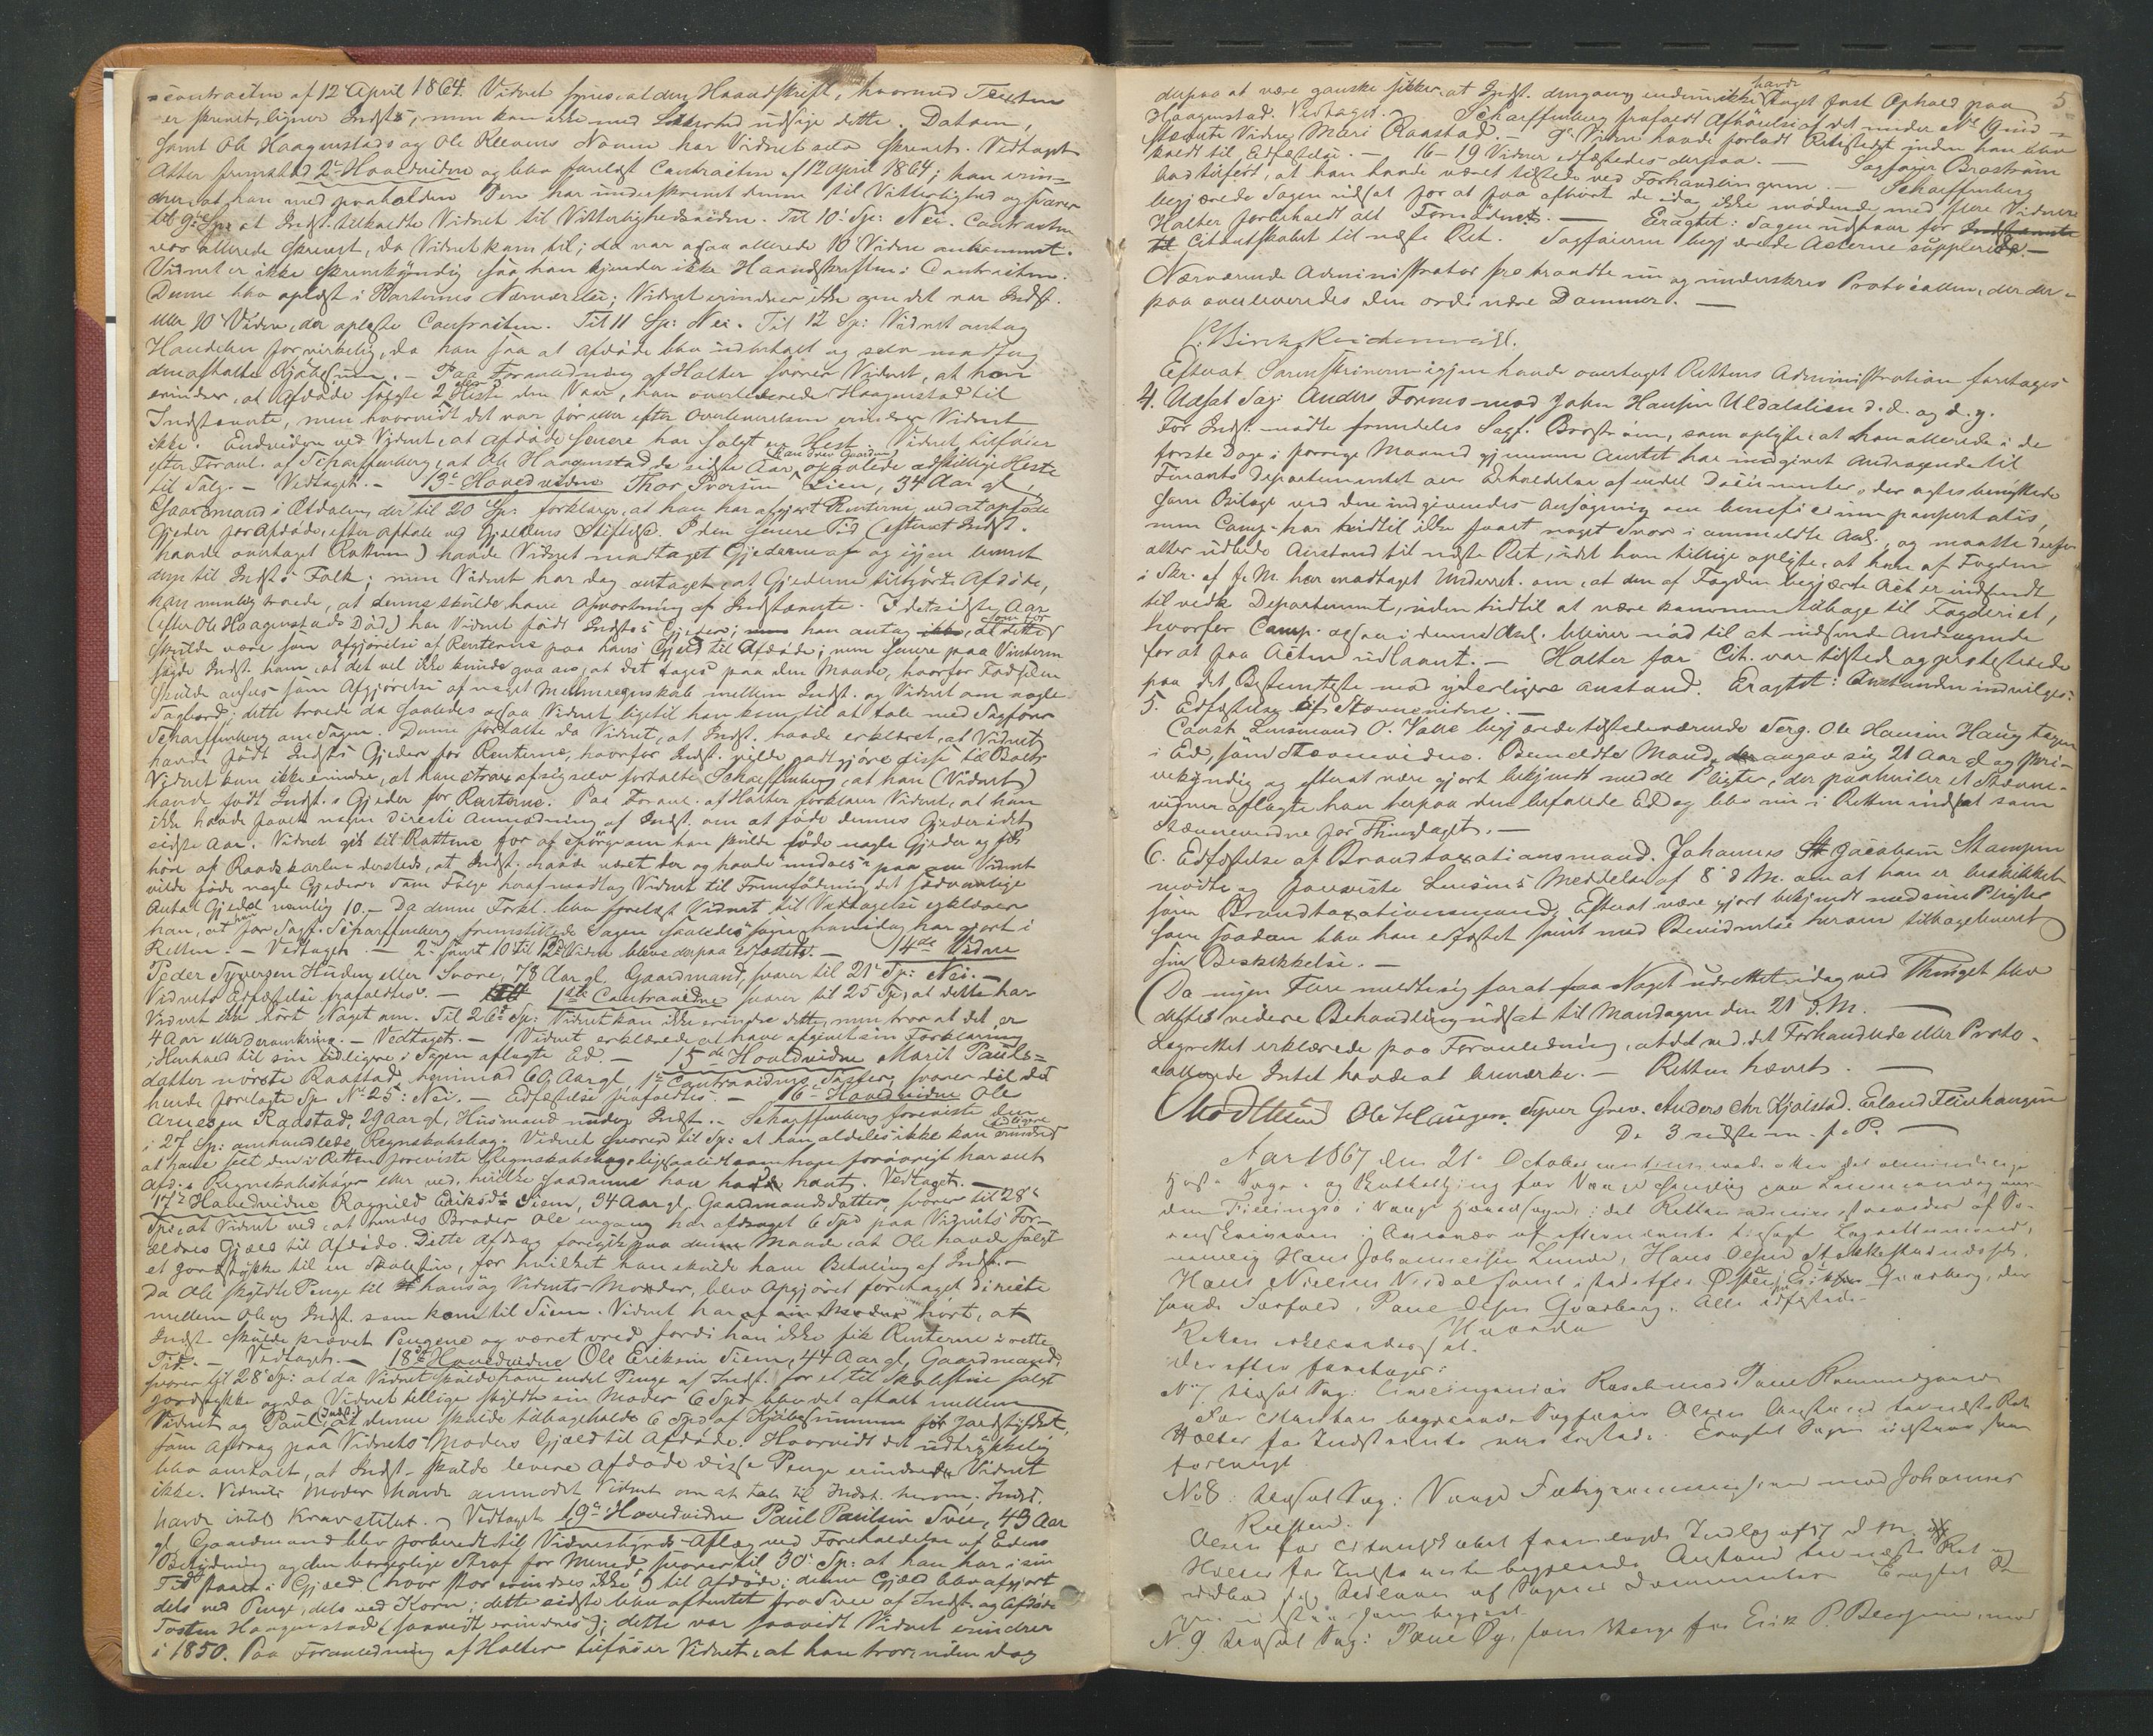 contracten af 12 April 1864. Vidnet synes at den Haandskrift, hvormed Texten
er skrevet, ligner Indst.s, men kan ikke med Sikkerhed udsige dette. Datum,
samt Ole Haagenstads og Ole Kleven's Navne har Vidnet selv skrevet. Vedtaget
Atter fremstod 2det Hovedvidne og blev forelagt Contracten af 12 April 1864; han erin-
drer at han med paaholden Pen har underskrevet denne til Vitterlighed og svarer
til 9de Sp: at Indst. tilkaldte Vidnet til Vitterlighedsvidne. Til 10' Sp: Nei. Contracten
var allerede skrevet, da Vidnet kom til; da var ogsaa allerede 10' Vidne ankommet.
Vidnet er ikke skrivekyndig saa han kjender ikke Haandskriften i Contracten.
Denne blev oplæst i Parternes Nærværelse; Vidnet erindrer ikke om det var Indst.
eller 10' Vidne, der oplæste Contracten. Til 11 Sp: Nei. Til 12 Sp: Vidnet antog
Handelen for virkelig, da han saa at Afdøde blev udbetalt og selv modtog
den aftalte Kjøbesum. - Paa Foranledning af Holter svarer Vidnet, at han
erindrer, at Afdøde solgte 2 Heste den Vaar, han overleverede Haagenstad til
Indstevnte, men hvorvidt det var før eller efter Overleverelsen erindrer Vidnet
ikke. Endvidere ved Vidnet, at Afdøde senere har solgt en Hest. Vidnet tilføier
efter Foranl. af Scharffenberg, at Ole Haagenstad de sidste Aar han drev Gaarden opalede adskillige Heste
til Salg. - Vedtaget. - 13de Hovedvidne Thor Iversen Lien, 34 Aar gl.,
Gaardmand i Øtdalen, der til 20 Sp: forklarer, at han har afgjort Renterne ved at opføde
Gjeder for Afdøde, efter Aftale ved Gjældens Stiftelse. I den senere Tid (efterat Indst.
havde overtaget Rustom) havde Vidnet modtaget Gjederne af og igjen leveret
dem til Indst.s Folk; men Vidnet har dog antaget, at Gjederne tilhørte Afdøde,
han nemlig troede, at denne skulde have Opvartning af Indstævnte. I det sidste Aar
(efter Ole Haagenstads Død) har Vidnet født Indst.s Gjeder; han antog, at dette
skulde være som Afgjørelse af Renterne paa hans Gjæld til Afdøde; men senere paa Vinteren
sagde Indst. ham, at det vel ikke kunde gaa an, at det toges paa den Maade, hvorfor Fødselen
skulde ansees som Afgjørelse af noget Mellemregnskab mellem Indst. og Vidnet om nogle
Sagbord; dette troede da saaledes ogsaa Vidnet ligetil han kom til at tale med Sagfører
Scharffenberg om Sagen. Denne fortalte da Vidnet, at Indst. havde erklæret, at Vidnet
havde født Indst.s Gjeder for Renterne, hvorfor Indst. vilde godtgjøre disse til Boet.
Vidnet kan ikke erindre, at han strax af sig selv fortalte Scharffenberg, at han (Vidnet)
havde født Indst.s Gjeder for Renterne. Paa Foranl. af Holter forklarer Vidnet, at han
ikke havde faaet nogen directe Anmodning af Indst. om at føde dennes Gjeder i det
sidste Aar. Vidnet gik til Rustom for at spørge om han skulde føde nogle Gjeder og fik
høre af Raadskarlen dersteds, at Indst. havde været der og havde paa om Vidnet
vilde føde nogle Gjeder. Som Følge heraf modtog Vidnet til Fremfødning det sædvanlige
Antal Gjeder nemlig 10. - Da denne Forkl. blev forelæst Vidnet til Vedtagelse erklærer
han, at han for Sagf. Scharffenberg fremstillede Sagen saaledes som han idag har gjort i
Retten. - Vedtaget. - 2de samt 10 til 13de Vidne bleve derpaa edfæstede. - 14de Vidne
Peder Syversen Hunden eller Svare, 78 Aar gl., Gaardmand, svarer til 21' Sp: Nei. -
Vidnets Edfæstelse frafaldtes. - 1ste Contravidne svarer til 25 Sp, at dette har
Vidnet ikke hørt Noget om. Til 26de Sp: Vidnet kan ikke erindre dette, men tror at det er
4 Aar eller deromkring. - Vedtaget. - Vidnet erklærede at have afgivet sin Forklaring
i Henhold til sin tidligere i Sagen aflagte Ed. - 15de Hovedvidne Marit Pauls-
datter nørste Raastad, henimod 60 Aar gl., 1ste Contravidnes Søster, svarer til det
hende forelagte Sp No 25: Nei. - Edfæstelse frafaldtes. - 16de Hovedvidne Ole
Arnesen Raastad, 29 Aar gl., Husmand under Indst. - Scharffenberg foreviste den
i 27 Sp: omhandlede Regnskabsbog. Vidnet svarer til Sp: at han aldeles ikke kan erindre
at have seet den i Retten foreviste Regnskabsbog ligesaalidt som han forøvrigt har seet
Afd.s Regnskabsbøger eller ved, hvilke saadanne han havde havt. Vedtaget. -
17de Hovedvidne Ragnild Eriksd. Siem, 34 Aar gl., Gaardmandsdatter, svarer til 28'
Sp: at Vidnet ved, at hendes Broder Ole engang har afdraget 6 Spd paa Vidnets For-
ældres Gjæld til Afdøde. Dette Afdrag foregik paa denne Maade, at Ole havde solgt
et Jordstykke til en Skolestue, for hvilket han skulde have Betaling af Indst. -
Da Ole skyldte Penge til hans og Vidnets Moder, blev Opgjøret foretaget directe
mellem Ole og Indst. som kom til Siem. Vidnet har af sin Moder hørt, at
Indst. skulde prøvet Pengene og været vred fordi han ikke fik Renterne i rette
Tid. - Vedtaget. - 18de Hovedvidne Ole Eriksen Siem, 44 Aar gl, Gaardmand,
svarer til 28 Sp: at da Vidnet skulde have endel Penge af Indst. for et til Skolestue solgt
Jordstykke og da Vidnet tillige skyldte sin Moder 6 Spd blev det aftalt mellem
Vidnet og Paul (Indst.) at denne skulde tilbageholde 6 Spd af Kjøbesummen for Jordstykket,
som Afdrag paa Vidnets Moders Gjæld til Afdøde. Hvorvidt det udtrykkelig
blev omtalt, at Indst. skulde levere Afdøde disse Penge erindrer Vidnet
ikke. Vidnets Moder havde anmodet Vidnet om at tale til Indst. herom. Indst.
havde intet Krav stillet. - Vedtaget. 19de Hovedvidne Paul Paulsen Sveе, 43 Aar
gl, Gaardmand blev forberedt til Vidnesbyrds Aflæg ved Foreholdelse af Edens
Betydning og den borgerlige Straf for Meened svarer til 30' Sp: at han har i sin
Tid staaet i Gjæld (hvor stor erindres ikke) til Afdøde; denne Gjæld blev afgjort
dels ved Penge, dels ved Korn; dette sidste blev afhentet fra Svee af Indst. og Afdøde
Tosten Haagenstad (saavidt erindres); dette var saavidt Vidnet erindrer
i 1850. Paa Foranledning af Holter tilføier Vidnet, at han tror, uden dog
5
derpaa at være ganske sikker, at Indst. dengang endnu ikke havde taget fast Ophold paa
Haagenstad. Vedtaget. - Scharffenberg frafaldt Afhørelse af det under No Ind-
stævnte Vidne Mari Raastad. - 9de Vidne havde forladt Retsstedet inden han blev
kaldt til Edfæstelse. - 16-19 Vidner edfæstedes derpaa. - Sagfører Brostrøm
bad tilført, at han havde været tilstede ved Forhandlingerne. - Scharffenberg
begjærede Sagen udsat for at faa afhørt de idag ikke mødende med flere Vidner
Holter forbeholdt alt Fornødent. - Eragtet: Sagen udstaar for
Citantskabet til næste Ret. Sagførerne begjærede Acterne supplerede. -
Nærværende Administrator fratraadte nu og underskrev Protocollen, der der-
paa overleveredes den ordinære Dommer. -
C. Birch Reichenwald.
Efterat Sorenskriveren igjen havde overtaget Rettens Administration foretoges
4. Udsat Sag: Anders Formo mod John Hansen Uldalslien d. æ. og d. y.
For Indst. mødte fremdeles Sagf. Brostrøm, som oplyste, at han allerede i de
første Dage i forrige Maaned gjennem Amtet har indgivet Andragende til
Finants Departementet om Udfærdigelse af endel Documenter, der agtes benyttede
som Bilage ved den indgivendes Ansøgning om beneficium paupertatis,
men Comp. har hidtil ikke faaet noget Svar i anmeldte Anl., og maatte derfor
atter udbede Anstand til næste Ret, idet han tillige oplyste, at han af Fogden
i Skr. af f. M. har modtaget Underret. om, at den af Fogden begjærte Act er indsendt
til vedk. Departement, uden hidtil at være kommen tilbage til Fogderiet,
hvorfor Comp. ogsaa i denne Anl. bliver nød til at indsende Andragende
for at faa Acten udlaant. - Holter for Cit. var tilstede og protesterede
paa det Bestemteste mod yderligere Anstand. Eragtet: Anstanden indvilges.
5. Edfæstelse af Stævnevidne. -
Const. Lensmand O. Valle begjærede tilstedeværende Serg. Ole Hansen Haug tagen
i Ed, som Stævnevidne. Bemeldte Mand, angav sig 21 Aar gl. og skri-
vekyndig og efterat være gjort bekjendt med de Pligter, der paahviler et Stævne-
vidne aflagte han herpaa den befalede Ed og blev nu i Retten indsat som
Stævnevidne for Thinglaget. -
6. Edfæstelse af Brandtaxationsmand. Johannes Jacobsen Stampen
mødte og foreviste Lensm.s Meddelelse af 8 d. M. om at han er beskikket
som Brandtaxationsmand. Efterat være gjort bekjendt med sine Pligter
som saadan blev han edfæstet samt med Bevidnelse herom tilbageleveret
sin Beskikkelse. -
Da ingen Flere meldte sig for at faa Noget udrettet idag ved Thinget blev
dettes videre Behandling udsat til Mandagen den 21 d. M. -
Lagrettet erklærede paa Foranledning, at det ved det Forhandlede eller Proto-
collerede Intet havde at bemærke. - Retten hævet. -
Ole Haugen. Syver Grev. Anders Chr. Kjølstad. Erland Fliehaugen
De 3 sidste m. f. P. -
Aar 1867 den 21 October continuerede atter det almindelige
Høst- Sage- og Skattething for Vaage Thinglag paa Lensmandsgaar-
den Fillingsø i Vaage Hovedsogn; det Retten administreredes af So-
renskriveren i Nærvær af efternævnte tilsagte Lagrettesmænd,
nemlig Hans Johannessen Lunde, Hans Olsen Stokkestadødegd.
Hans Nielsen Nordal samt istedetfor Østen Eriksen Qvarberg, der
havde Forfald, Paul Olsen Qvarberg. Alle edfæstede.
Retten
Derefter foretoges:
No 7. Udsat Sag: Civilingeniør Rasch mod Paul
For Citanten begjærede Sagfører Olsen Anstand til næste Ret
Holter for Indstævnte var tilstede. Eragtet Sagen udstaar som
forlangt
No 8: Udsat Sag: Vaage Fattigcommission mod Johannes
Olsen for Citantskabet fremlagde Indlæg af 17 d. M.
Holter for Indstævnte begjærede Anstand til næste Ret og
udbad sig Udlaan af Sagens Documenter Eragtet Sa-
gen udstaar som begjært.
N. 9 Udsat Sag: Paul Øy, som Værge for Erik P. mod